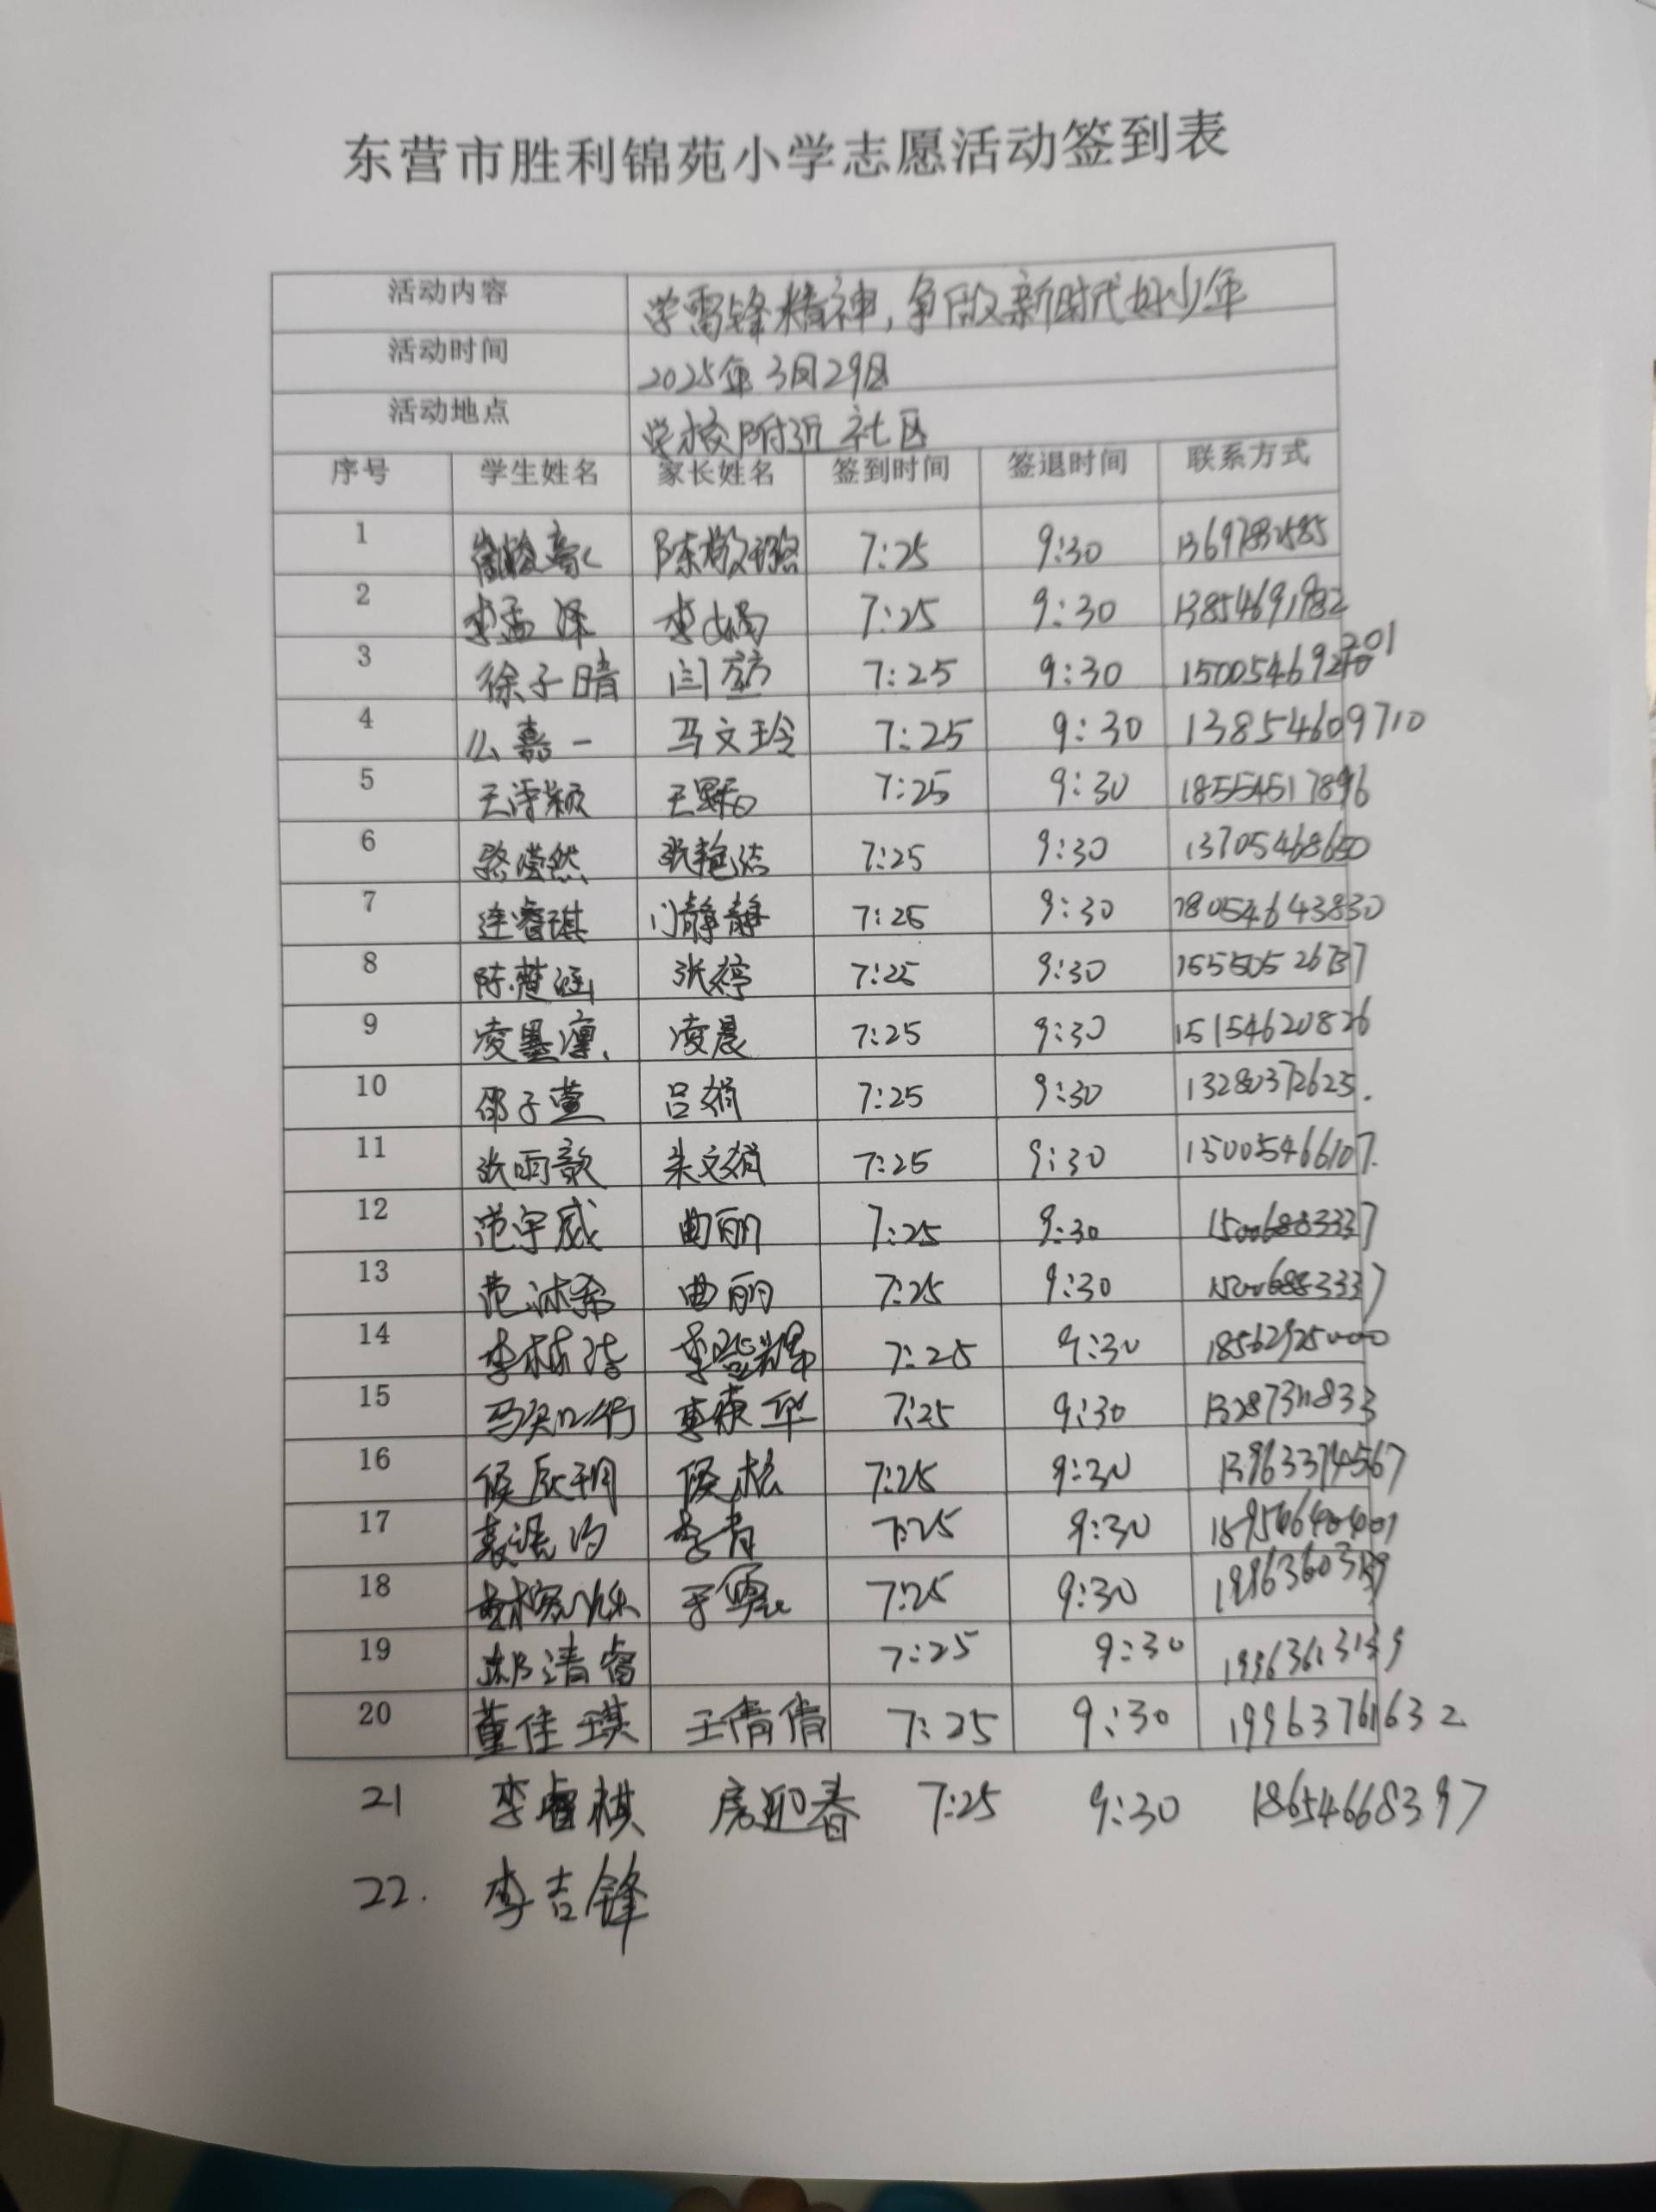 东营市胜利锦苑小学志愿活动签到表
活动内容 学雷锋精神,争做新时代好少年
活动时间 2025年3月29日
活动地点 学校附近社区
序号 学生姓名 家长姓名 签到时间 签退时间 联系方式
1 陈敬璐 7:25 9:30
2 李孟泽 李娟 7:25 9:30 13854691982
3 徐子晴 闫芳 7:25 9:30
4 么嘉一 马文玲 7:25 9:30 13854609710
5 7:25 9:30
6 骆滢然 张艳洁 7:25 9:30 13705468650
7 连睿琪 门静静 7:25 9:30 18054643830
8 陈楚涵 张婷 7:25 9:30
9 凌墨凛 凌晨 7:25 9:30 15154620826
10 邵子萱 吕娟 7:25 9:30 13280372625.
11 张雨歆 朱文娟 7:25 9:30 15005466107.
12 范宇威 曲丽 7:25 9:30 15006883337
13 范沭希 曲丽 7:25 9:30 15006883337
14 李栋浩 7:25 9:30 18562925000
15 马知行 7:25 9:30
16 侯辰玥 侯松 7:25 9:30 13963374567
17 李青 7:25 9:30
18 7:25 9:30
19 清睿 7:25 9:30
20 董佳琪 王倩倩 7:25 9:30 19963761632
21 李睿棋 房迎春 7:25 9:30 18654668397
22. 李吉锋